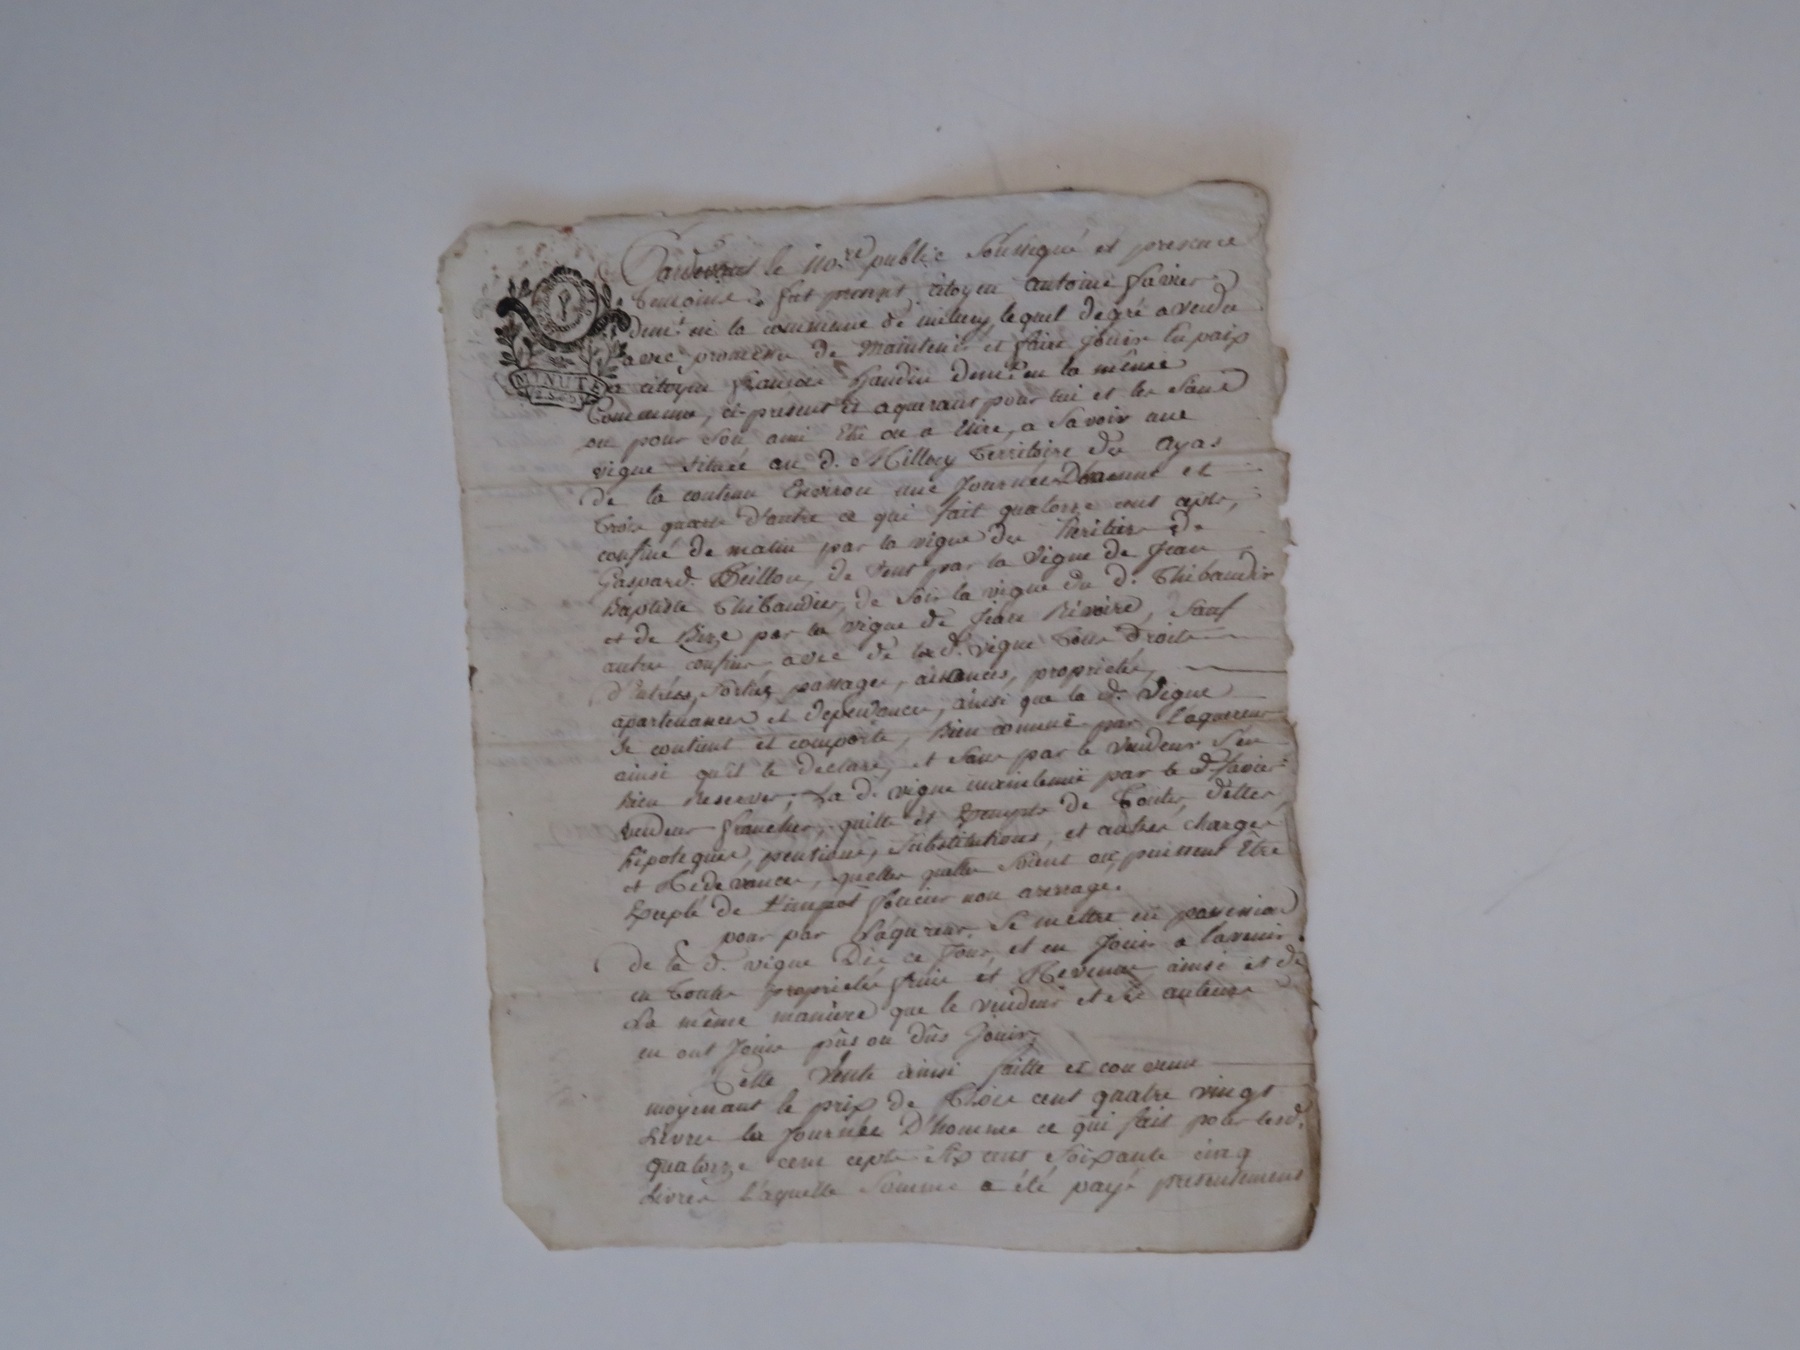 MINUTE
Pardevant le no.re public Soussigné et presence
temoins fut present citoyen antoine favier
dem.t en la commune de millery, lequel de gré a vendu
avec promesse de Maintenir et faire Jouir en paix
a citoyen françois dem.t en la même
Commune, ci-present et aquerant pour lui et les Siens
ou pour Son ami Elû ou a Elire, a Savoir une
vigne Située au d. Millery Territoire des ayas
de la contenu Environ une Journée D'homme et
trois quarts d'autre ce qui fait quatorze cent ceps,
confiné de matin par la vigne des heritiers de
Gaspard, de vent par la Vigne de Jean
Baptiste Thibaudier, de Soir la vigne du d. Thibaudier
et de Bize par la vigne de Jean Révoire, Sauf
autres confins avec de la d. vigne tous Droits
d'Entrées, Sorties, passages, aisances, proprietés,
apartenances et dependances, ainsi que la d. Vigne
Se contient et comporte, Bien connuë par l'aquereur
ainsi qu'il le declare, et Sans par le Vendeur S'en
Rien Reserver, La d. vigne maintenuë par le d. favier
Vendeur franche, quitte et Exempte de Toutes dettes,
hipoteques, pentions, Substitutions, et autres charges
et Redevances, quelles quelles Soient ou puissent Etre
Excepté de l'impot foncier non arerragé.
pour par L'aquereur Se mettre en possession
de la d. vigne Dès ce Jour, et en Jouir a l'avenir
en toutes proprietés fruis et Revenus ainsi et de
La même maniere que le vendeur et Ses auteurs
en ont Jouis pûs ou dûs Jouir,
Cette Vente ainsi faitte et convenu
moyenant le prix de Trois cent quatre vingt
Livres la Journée D'homme ce qui fait pour lesd.
quatorze cent ceps Six cent Soixante cinq
Livres Laquelle Somme a été payé presentement